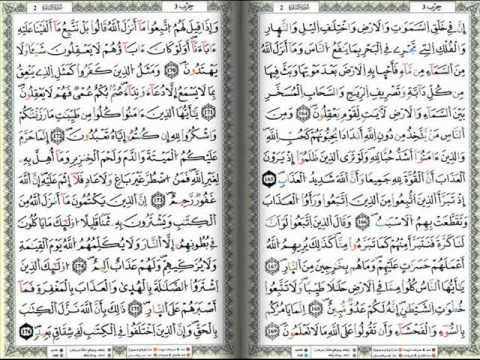 حزب 3
2
إن في خلق السموت والارض واختلف اليل والنهار
والفلك التي تجري في البحر بما ينفع الناس وما أنزل الله
من السماء من ماء فأحيا به الارض بعد موتها وبث فيها
من كل دابة وتصريف الريح والسحاب المسخر
بين السماء والارض لأيت لقوم يعقلون ومن
الناس من يتخذ من دون الله أندادا يحبونهم كحب الله
والذين ءامنوا أشد حبا لله ولو ترى الذين ظلموا إذ يرون
العذاب أن القوة لله جميعا وأن الله شديد العذاب
إذ تبرأ الذين اتبعوا من الذين اتبعوا ورأوا العذاب
وتقطعت بهم الاسبب وقال الذين اتبعوا لو أن
لنا كرة فنتبرأ منهم كما تبرءوا منا كذلك يريهم الله
أعملهم حسرت عليهم وما هم بخرجين من النار يأيها
الناس كلوا مما في الارض حللا طيبا ولا تتبعوا
خطوت الشيطن إنه لكم عدو مبين إنما يأمركم
بالسوء والفحشاء وأن تقولوا على الله ما لا تعلمون
حزب 3
2
وإذا قيل لهم اتبعوا ما أنزل الله قالوا بل نتبع ما ألفينا عليه
ءاباءنا أولو كان ءاباؤهم لا يعقلون شيئا ولا
يهتدون ومثل الذين كفروا كمثل الذي ينعق
بما لا يسمع إلا دعاء ونداء صم بكم عمي فهم لا يعقلون
يأيها الذين ءامنوا كلوا من طيبت ما رزقنكم
واشكروا لله إن كنتم إياه تعبدون إنما حرم
عليكم الميتة والدم ولحم الخنزير وما أهل به
لغير الله فمن اضطر غير باغ ولا عاد فلا إثم عليه إن الله
غفور رحيم إن الذين يكتمون ما أنزل الله من
الكتب ويشترون به ثمنا قليلا أولئك ما يأكلون
في بطونهم إلا النار ولا يكلمهم الله يوم القيمة
ولا يزكيهم ولهم عذاب اليم أولئك الذين
اشتروا الضللة بالهدى والعذاب بالمغفرة فما
أصبرهم على النار ذلك بأن الله نزل الكتب
بالحق وإن الذين اختلفوا في الكتب لفي شقاق بعيد